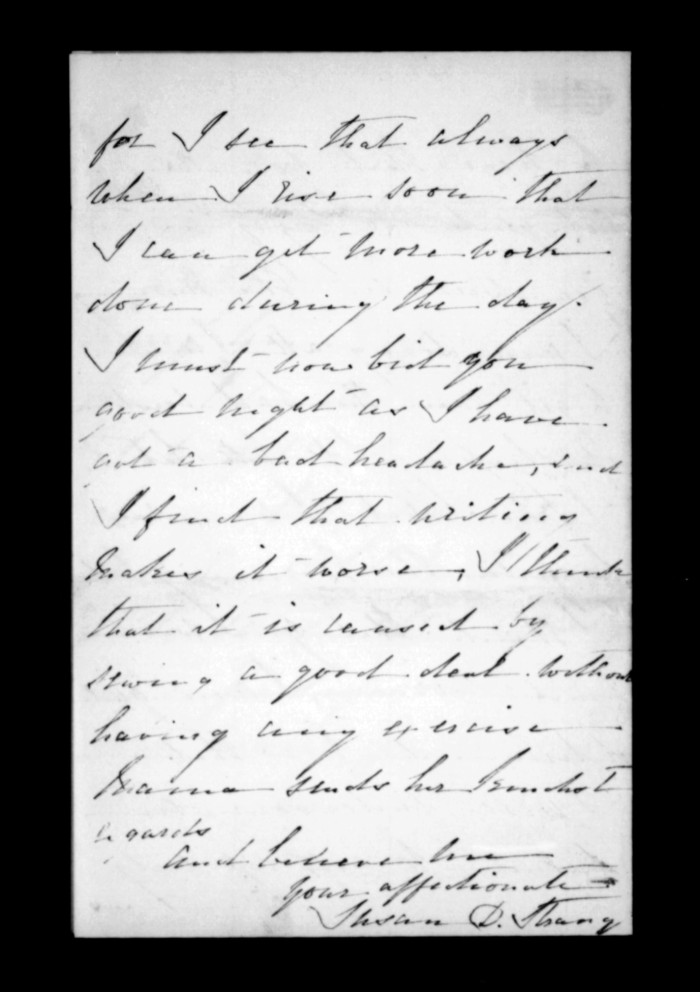 for I see that always
when I rise soon that
I can get more work
done during the day.
I must now bid you
good night as I have
got a bad headache, and
I find that writing
makes it worse, I think
that it is caused by
sewing a good deal without
having any exercise
Mama sends her kindest
regards
and believe me
your affectionate
Susan D. Strang